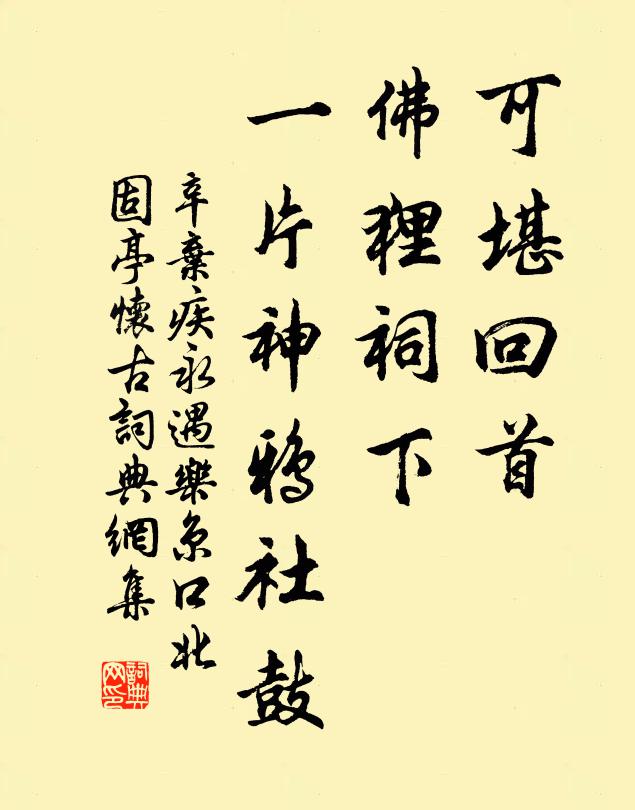 可堪回首
佛狸祠下
一片神鴉社鼓
辛棄疾永遇樂京口北
固亭懷古詞典網集
詞典
网印